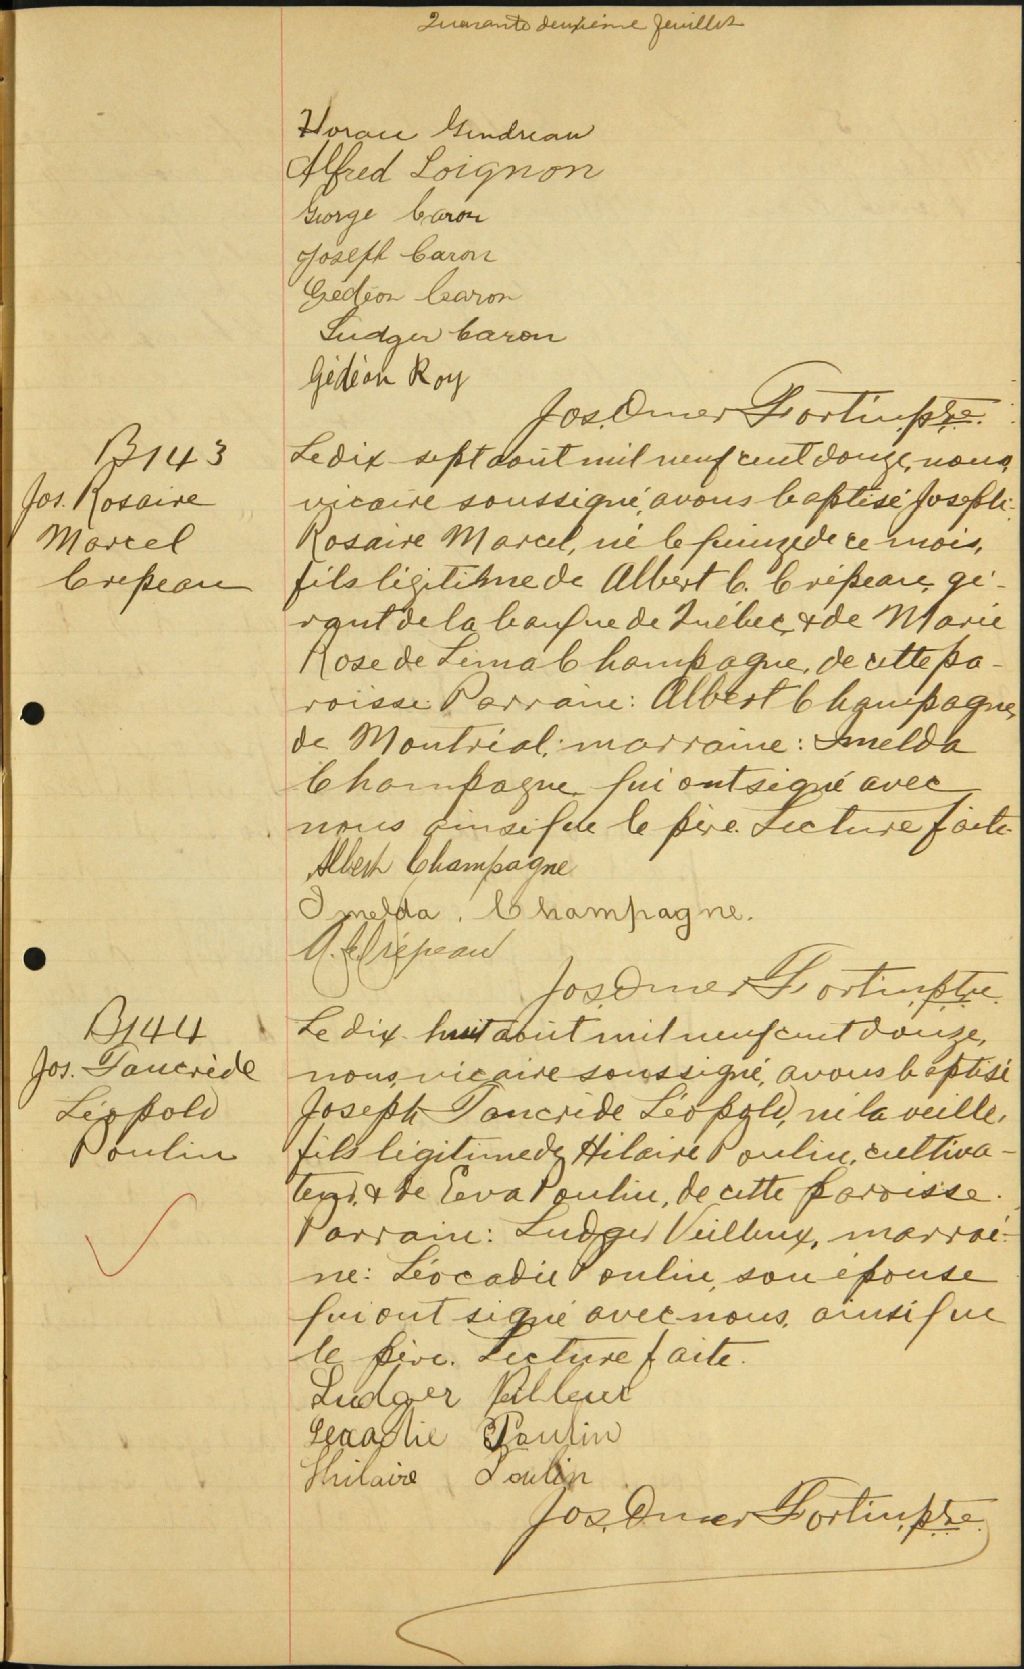 Quarante deuxième feuillet
Horace Gendreau
Alfred Loignon
George Caron
Joseph Caron
Gédéon Caron
Ludger Caron
Gédéon Roy
Jos. Omer Fortin, ptre.
B143
Jos. Rosaire
Marcel
Crepeau
Le dix-sept août mil neuf cent douze, nous,
vicaire soussigné, avons baptisé Joseph
Rosaire Marcel, né le quinze de ce mois,
fils légitime de Albert C. Crépeau, gé-
rant de la banque de Québec, & de Marie
Rose de Lima Champagne, de cette pa-
roisse. Parrain: Albert Champagne,
de Montréal; marraine: Imelda
Champagne qui ont signé avec
nous ainsi que le père. Lecture faite.
Albert Champagne
Imelda. Champagne.
A. C. Crépeau
Jos. Omer Fortin, ptre.
B144
Jos. Tancrède
Léopold
Poulin
Le dix-huit août mil neuf cent douze,
nous, vicaire soussigné, avons baptisé
Joseph Tancrède Léopold, né la veille,
fils légitime de Hilaire Poulin, cultiva-
teur, & de Eeva Poulin, de cette paroisse.
Parrain: Ludger Veilleux, marrai-
ne: Léocadie Poulin, son épouse
qui ont signé avec nous, ainsi que
le père. Lecture faite.
Ludger
Poulin
Hilaire Poulin
Jos. Omer Fortin, ptre.